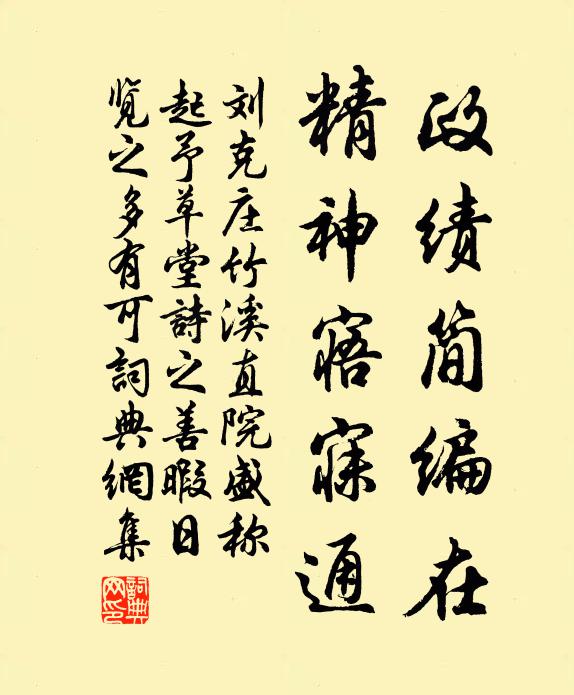 政绩简编在
精神寤寐通
刘克庄竹溪直院盛称
起予草堂詩之善暇日
览之多有可詞典網集
詞典
网印